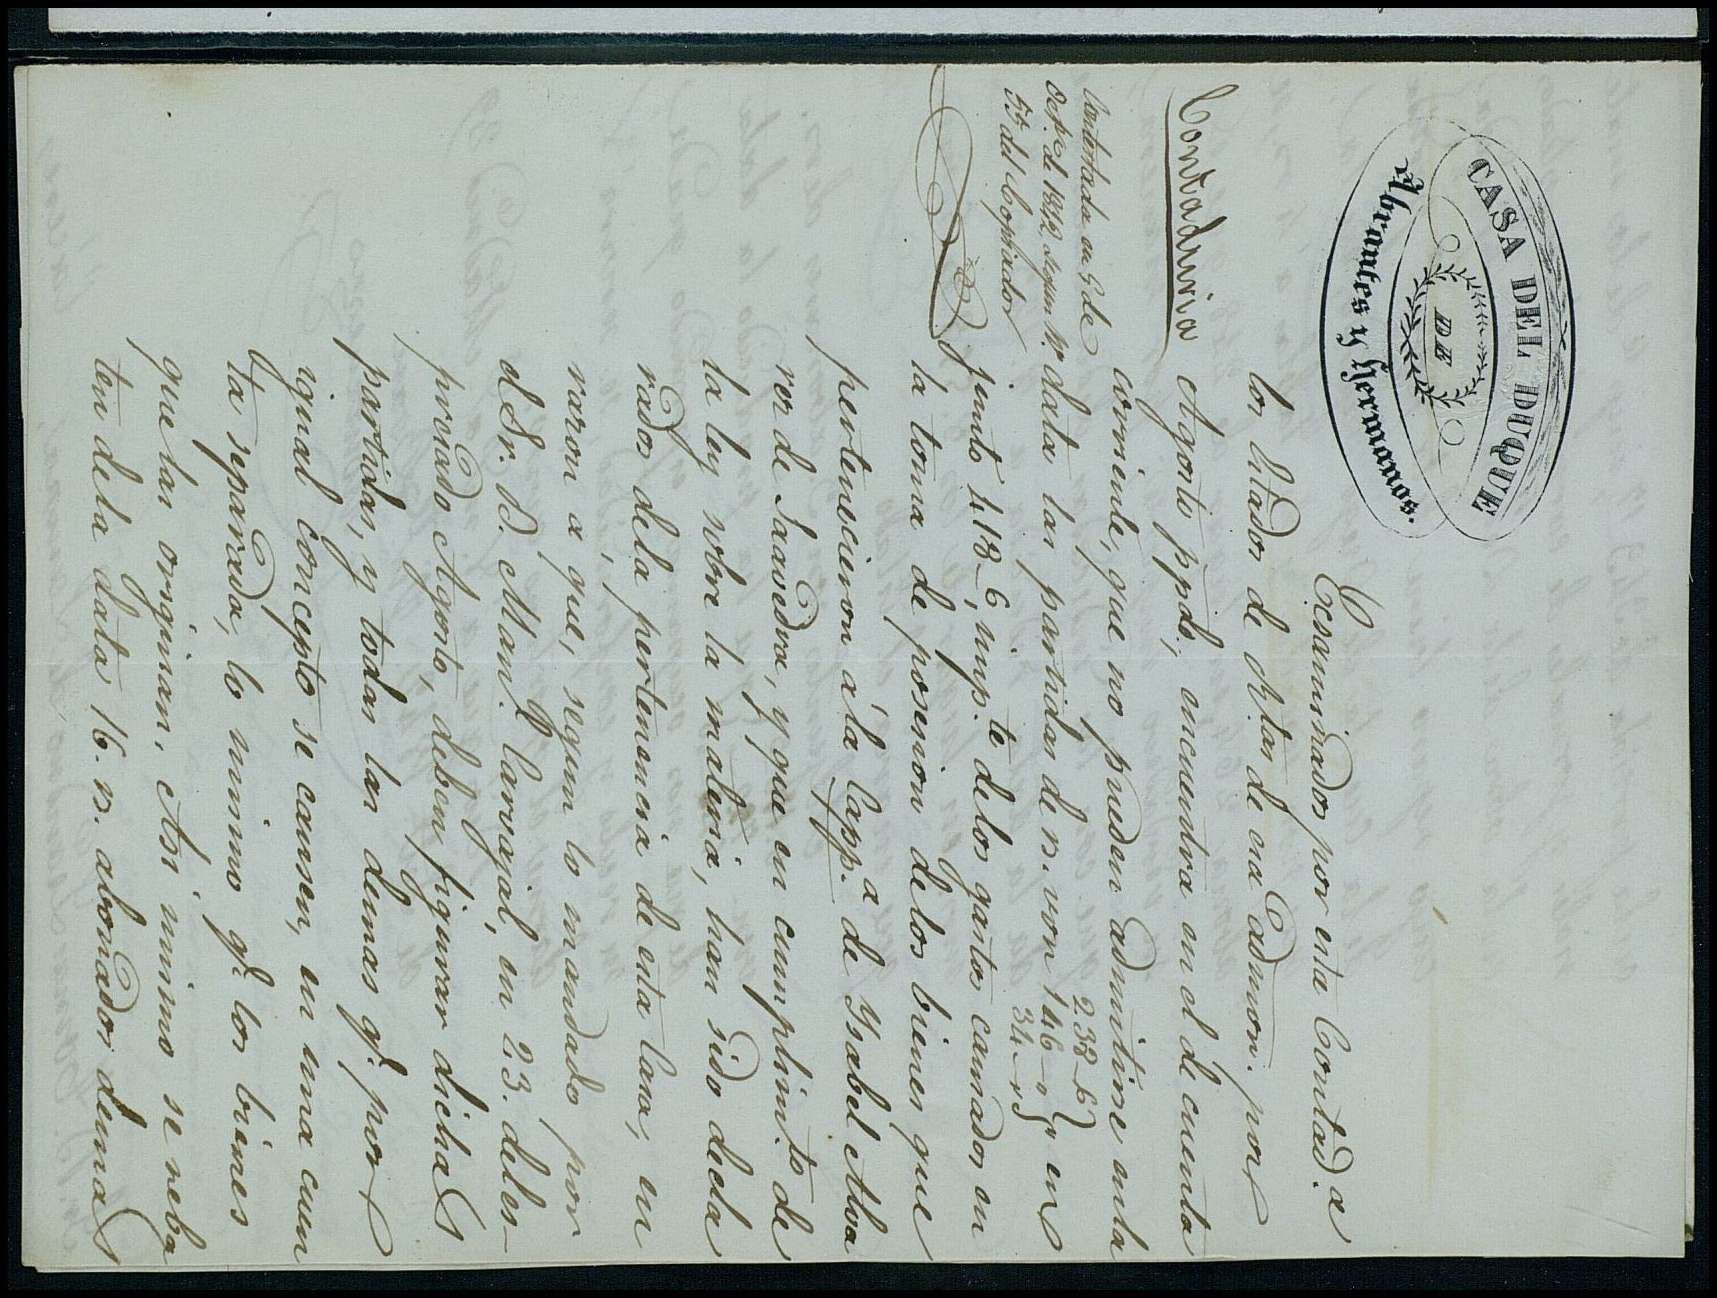 CASA DEL DUQUE
DE
Abrantes y Hermanos.
Contaduria
Contestada en 9 de
Octre. de 1842 segun Nº.
55 del Copiador
Ecsaminados por esta Contad.a
los litados de Rtas de esa admon. por
Agosto ppdo, encuentra en el de cuenta
corriente, que no pueden admitirse en la
data las partidas de rs. von
238-6
146-0
34-rs
y en
junto 418-6, imp.te de los gastos causados en
la toma de posesion de los bienes que
pertenecieron a la Capp.a de Ysabel Alva
rez de Saavedra, y que en cumplim.to de
la ley sobre la materia, han sido decla
rados de la pertenencia de esta Casa, en
razon a que, segun lo mandado por
el Sr. D. Man.l Carvajal, en 23. de los
previado Agosto, deben figurar dichas
partidas, y todas las demas q.e por
igual concepto se causen, en una cuen
ta separada, lo mismo q.e los bienes
que las originan. Asi mismo se reba
ten de la data 16. rs. abonados demas